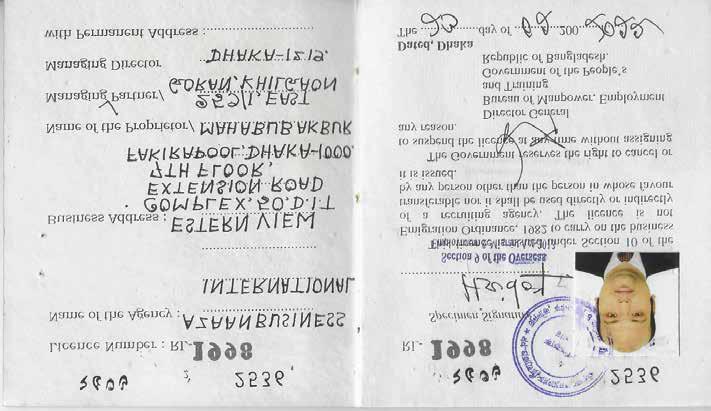 Licence Number : RL- 1998
Name of the Agency : AZAAN BUSINESS
INTERNATIONAL
Business Address : ESTERN VIEW
COMPLEX, 50, D.I.T
EXTENSION ROAD
7TH FLOOR,
FAKIRAPOOL, DHAKA-1000.
Name of the Proprietor/ MAHABUB AKBUR
Managing Partner/ 259/1, EAST
GORAN, KHILGAON
Managing Director DHAKA-1219.
with Permanent Address :
RL- 1998
Specimen Signature
Section 9 of the Overseas
under Section 10 of the
Emigration Ordinance, 1982 to carry on the business
of a recruiting agency. The licence is not
transferable nor it shall be used directly or indirectly
by any person other than the person in whose favour
it is issued.
The Government reserves the right to cancel or
to suspend the licence at any time without assigning
any reason.
Director General
Bureau of Manpower, Employment
and Training
Government of the People's
Republic of Bangladesh.
Dated, Dhaka
The day of 200